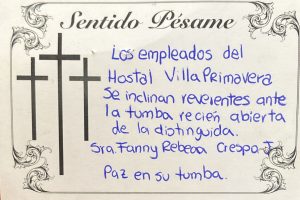 Sentido Pésame
Los empleados del
Hostal Villa Primavera
Se inclinan reverentes ante
la tumba recién abierta
de la distinguida.
Sra. Fanny Rebeca Crespo J.
Paz en su tumba.